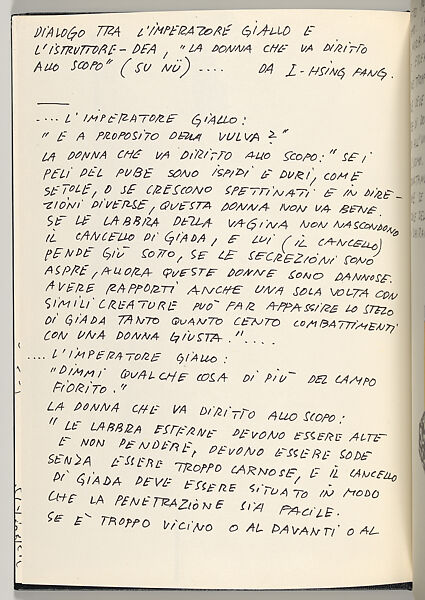 DIALOGO TRA L'IMPERATORE GIALLO E
L'ISTRUTTORE-DEA, "LA DONNA CHE VA DIRITTO
ALLO SCOPO" (SU NÜ) .... DA I-HSING FANG.
.... L'IMPERATORE GIALLO:
"E A PROPOSITO DELLA VULVA?"
LA DONNA CHE VA DIRITTO ALLO SCOPO: "SE I
PELI DEL PUBE SONO ISPIDI E DURI, COME
SETOLE, O SE CRESCONO SPETTINATI E IN DIRE-
ZIONI DIVERSE, QUESTA DONNA NON VA BENE.
SE LE LABBRA DELLA VAGINA NON NASCONDONO
IL CANCELLO DI GIADA, E LUI (IL CANCELLO)
PENDE GIÙ SOTTO, SE LE SECREZIONI SONO
ASPRE, ALLORA QUESTE DONNE SONO DANNOSE.
AVERE RAPPORTI ANCHE UNA SOLA VOLTA CON
SIMILI CREATURE PUÒ FAR APPASSIRE LO STELO
DI GIADA TANTO QUANTO CENTO COMBATTIMENTI
CON UNA DONNA GIUSTA."....
.... L'IMPERATORE GIALLO:
"DIMMI QUALCHE COSA DI PIÙ DEL CAMPO
FIORITO."
LA DONNA CHE VA DIRITTO ALLO SCOPO:
"LE LABBRA ESTERNE DEVONO ESSERE ALTE
E NON PENDERE, DEVONO ESSERE SODE
SENZA ESSERE TROPPO CARNOSE, E IL CANCELLO
DI GIADA DEVE ESSERE SITUATO IN MODO
CHE LA PENETRAZIONE SIA FACILE.
SE È TROPPO VICINO O AL DAVANTI O AL